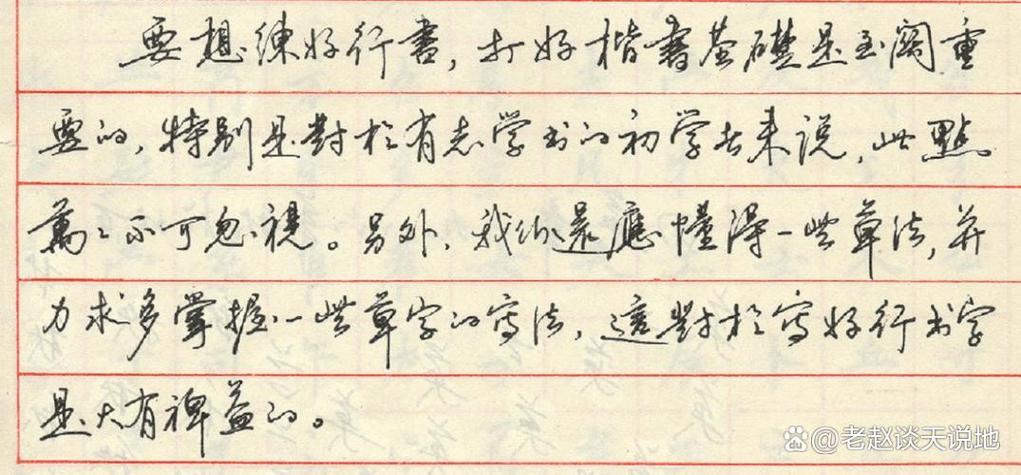 要想練好行書，打好楷書基礎是至關重
要的，特别是對於有志学书的初学者来说，此點
萬萬不可忽視。另外，我们還應懂得一些草法，并
力求多掌握一些草字的写法，這對於写好行书字
是大有裨益的。
老赵谈天说地